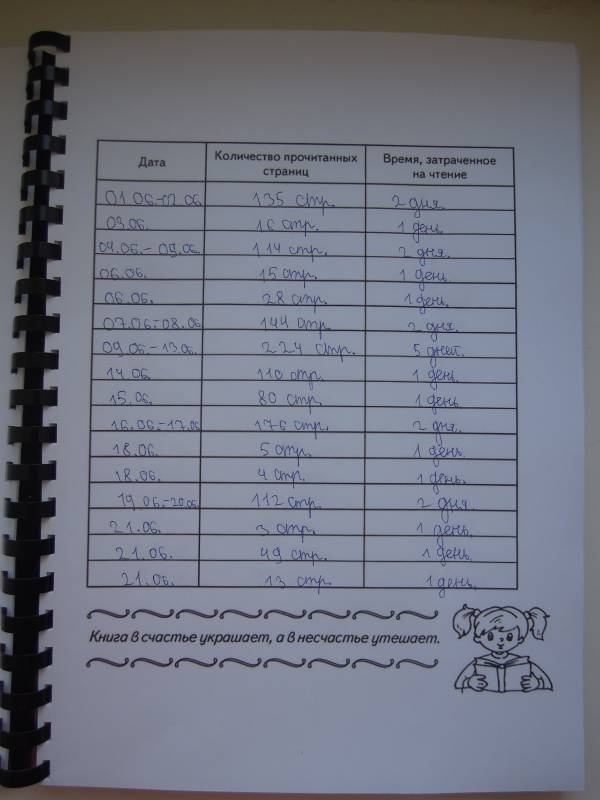 Дата Количество прочитанных страниц Время, затраченное на чтение
01.06.-02.06. 135 стр. 2 дня.
03.06. 16 стр. 1 день.
04.06.-05.06. 114 стр. 2 дня.
06.06. 15 стр. 1 день.
06.06. 28 стр. 1 день.
07.06-08.06 144 стр 2 дня.
09.06.-13.06. 224 стр. 5 дней.
14.06 110 стр. 1 день.
15.06. 80 стр. 1 день.
16.06.-17.06 176 стр. 2 дня.
18.06. 5 стр. 1 день.
18.06. 4 стр. 1 день.
19.06.-20.06. 112 стр. 2 дня
21.06. 3 стр. 1 день.
21.06. 49 стр. 1 день.
21.06. 13 стр. 1 день.
Книга в счастье украшает, а в несчастье утешает.